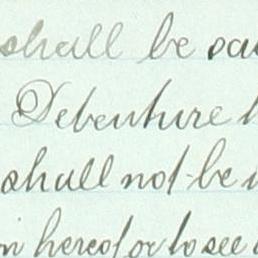 shall be
Debenture
shall not be
hereof or to see